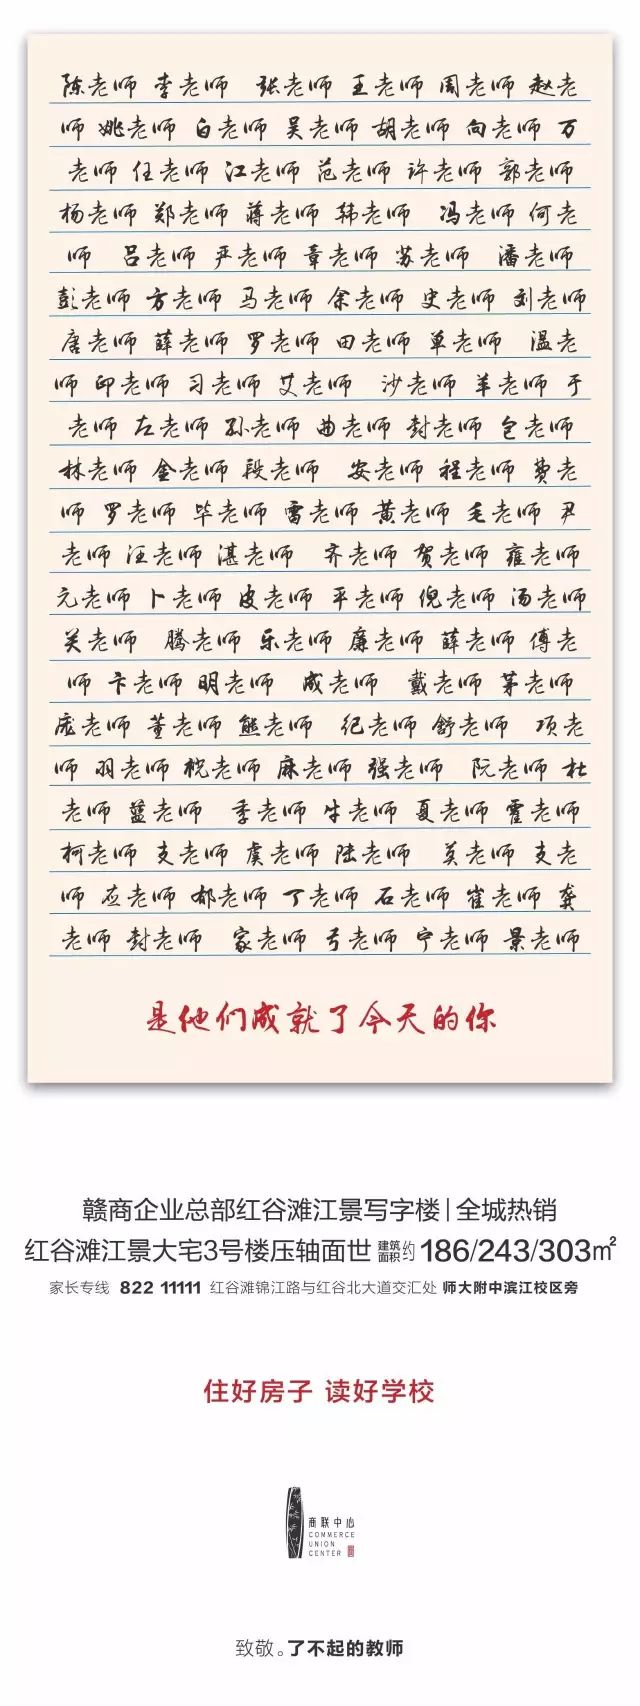 陈老师 李老师 张老师 王老师 周老师 赵老
师 姚老师 白老师 吴老师 胡老师 向老师 万
老师 任老师 江老师 范老师 许老师 郭老师
杨老师 郑老师 蒋老师 韩老师 冯老师 何老
师 吕老师 严老师 章老师 苏老师 潘老师
彭老师 方老师 马老师 余老师 史老师 刘老师
唐老师 薛老师 罗老师 田老师 单老师 温老
师 邱老师 习老师 艾老师 沙老师 羊老师 于
老师 左老师 孙老师 曲老师 封老师 包老师
林老师 金老师 段老师 安老师 程老师 费老
师 罗老师 毕老师 雷老师 黄老师 毛老师 尹
老师 汪老师 湛老师 齐老师 贺老师 雍老师
元老师 卜老师 皮老师 平老师 倪老师 汤老师
关老师 腾老师 乐老师 廉老师 薛老师 傅老
师 卞老师 明老师 成老师 戴老师 茅老师
庞老师 董老师 熊老师 纪老师 舒老师 项老
师 羽老师 祝老师 麻老师 强老师 阮老师 杜
老师 蓝老师 季老师 牛老师 夏老师 霍老师
柯老师 支老师 虞老师 陆老师 莫老师 支老
师 应老师 郁老师 丁老师 石老师 崔老师 龚
老师 封老师 家老师 弓老师 宁老师 景老师
是他们成就了今天的你
赣商企业总部红谷滩江景写字楼|全城热销
红谷滩江景大宅3号楼压轴面世 建筑面积约186/243/303㎡
家长专线 822 11111 红谷滩锦江路与红谷北大道交汇处 师大附中滨江校区旁
住好房子 读好学校
商联中心
COMMERCE
UNION
CENTER
致敬。了不起的教师